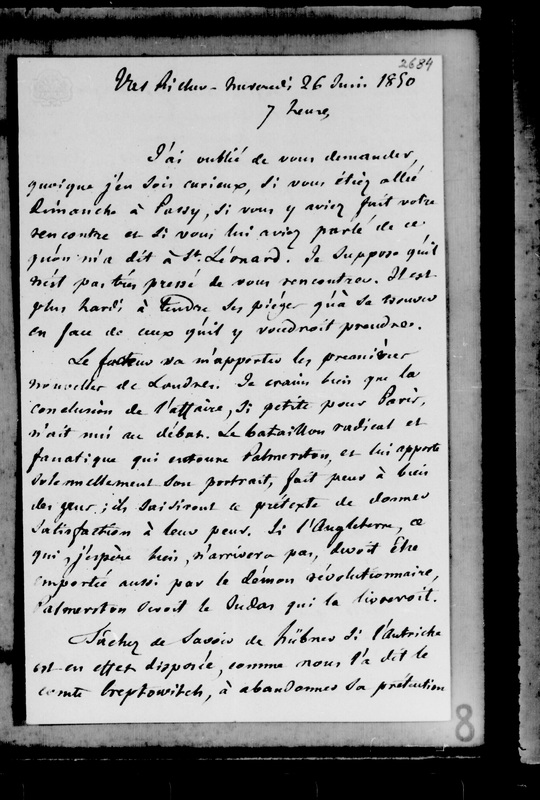 2684
Val Richer - Mercredi 26 Juin 1850
7 heures
J'ai oublié de vous demander,
quoique j'en sois curieux, si vous étiez allée
Dimanche à Passy, si vous y aviez fait votre
rencontre et si vous lui aviez parlé de ce
qu'on m'a dit à St. Léonard. Je suppose qu'il
n'est pas très pressé de vous rencontrer. Il est
plus hardi à tendre ses pièges qu'à se trouver
en face de ceux qu'il y voudroit prendre.
Le facteur va m'apporter les premières
nouvelles de Londres. Je crains bien que la
conclusion de l'affaire, si petite pour Paris,
n'ait nui au débat. Le bataillon radical et
fanatique qui entoure Palmerston, et lui apporte
solennellement son portrait, fait peur à bien
des gens ; ils saisiront ce prétexte de donner
satisfaction à leur peur. Si l'Angleterre, ce
qui, j'espère bien, n'arrivera pas, devoit être
emportée aussi par le démon révolutionnaire,
Palmerston seroit le Judas qui la livreroit.
Tâchez de savoir de Hübner si l'Autriche
est en effet disposée, comme nous l'a dit le
comte Creptowitch, à abandonner sa prétention
8